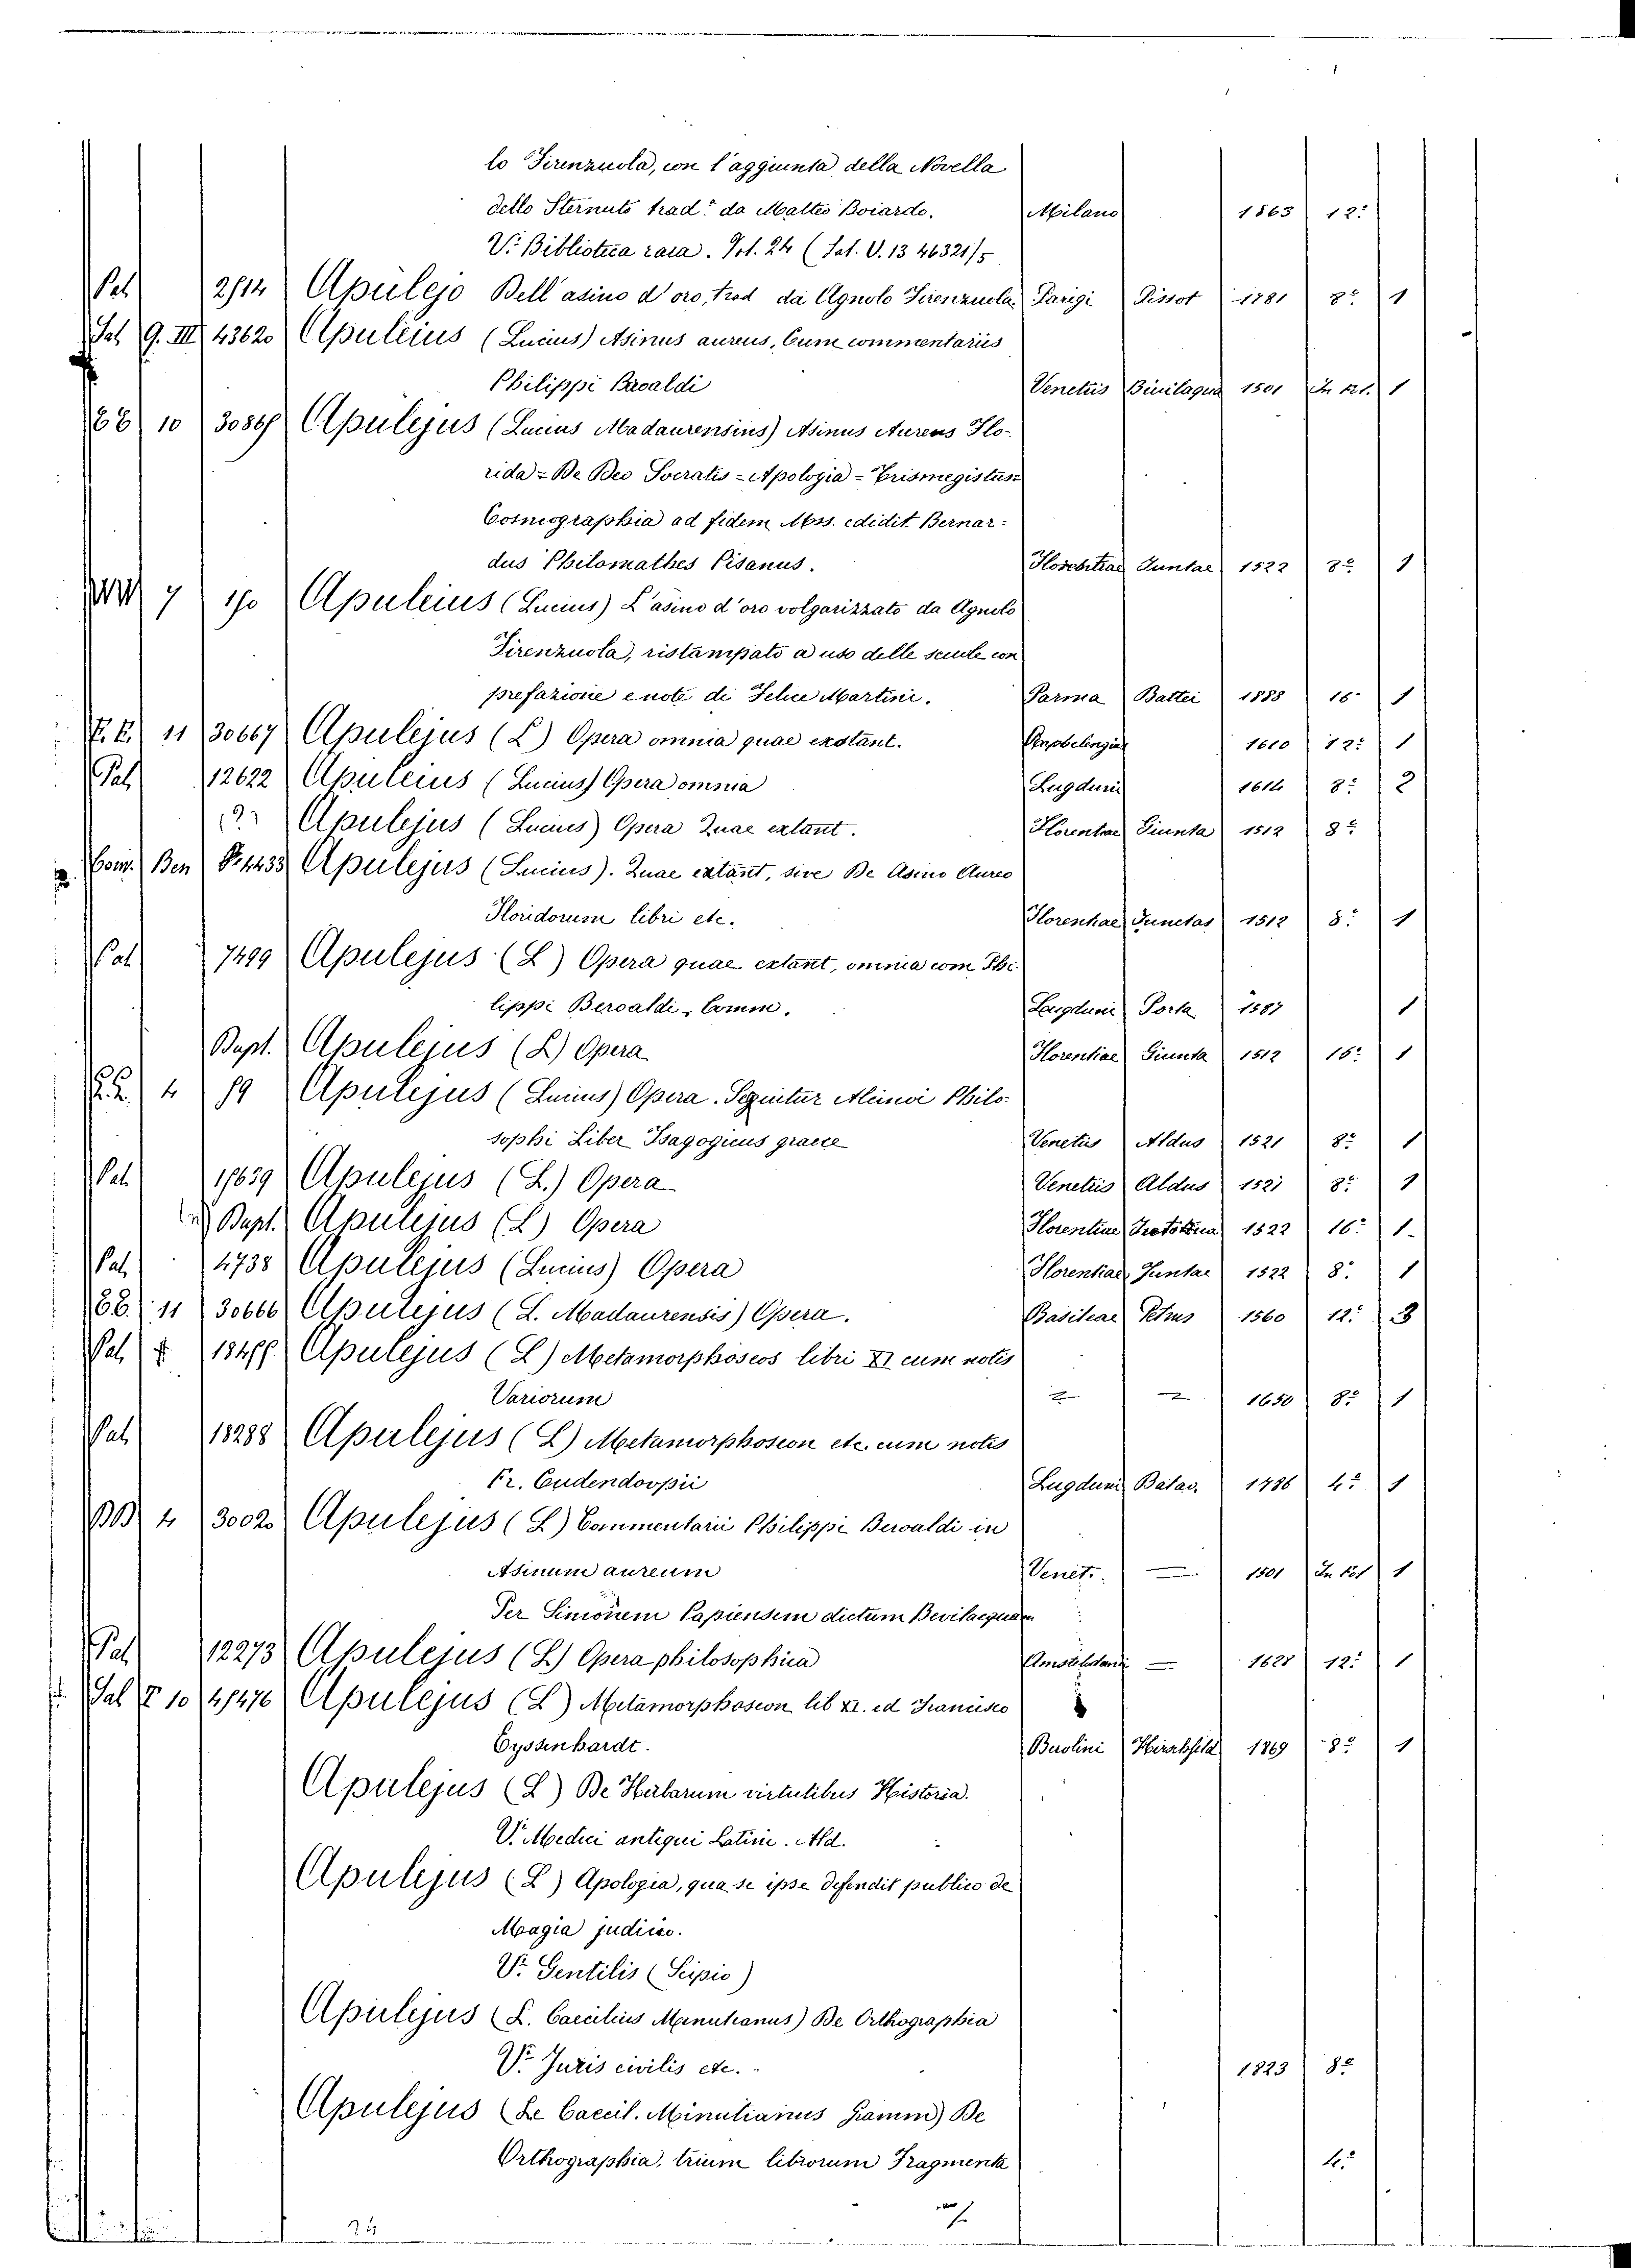 lo Firenzuola, con l'aggiunta della Novella
dello Sternuto trad.e da Matteo Boiardo. Milano 1863 12.°
V. Biblioteca rara. Vol. 24 (Sal. V. 13 46321/5
Pal 2/14 Apulejo Bell'asino d'oro, trad da Agnolo Firenzuola Parigi Pissot 1781 8.° 1
Sal 9. III 43620 Apuleius (Lucius) Asinus aureus, Cum commentariis
Philippi Beroaldi Venetiis Bevilaqua 1501 In fol. 1
10 Apulejus (Lucius Madaurensius) Asinus Aureus Flo-
rida = De Deo Socratis = Apologia = Trismegistus =
Cosmographia ad fidem Mss. edidit Bernar-
dus Philomathes Pisanus. Florentiae Juntae 1522 8.° 1
7 Apuleius (Lucius) L'asino d'oro volgarizzato da Agnolo
Firenzuola, ristampato a uso delle scuole con
prefazione e note di Felice Martini. Parma Battei 1888 16. 1
11 30667 Apulejus (L) Opera omnia quae exstant. 1610 12.° 1
Pal 12622 Apuleius (Lucius) Opera omnia Lugduni 1614 8.° 2
Apulejus (Lucius) Opera Quae extant. Florentiae Giunta 1512 8.°
Com. Ben 4433 Apulejus (Lucius). Quae extant, sive De Asino Aureo
Floridorum libri etc. Florentiae Junctas 1512 8.° 1
Pal 7499 Apulejus (L) Opera quae extant, omnia com Phi-
lippi Beroaldi, Comm. Lugduni Porta 1587 1
Bapt. Apulejus (L) Opera Florentiae Giunta 1512 16.° 1
4 Apulejus (Lucius) Opera. Sequitur Alcinoi Philo-
sophi Liber Isagogicus graece Venetiis Aldus 1521 8.° 1
Pal. Apulejus (L.) Opera Venetiis Aldus 1521 8.° 1
Bapt. Apulejus (L) Opera Florentiae 1522 16.° 1
Pal. 4738 Apulejus (Lucius) Opera Florentiae Juntae 1522 8.° 1
11 30666 Apulejus (L. Madaurensis) Opera. Basileae Petrus 1560 12.° 3
Pal. Apulejus (L) Metamorphoseos libri XI cum notis
Variorum = = 1650 8.° 1
Pal 18288 Apulejus (L) Metamorphoseon etc. cum notis
Fr. Oudendorpii Lugduni Batav. 1786 4.° 1
4 30020 Apulejus (L) Commentarii Philippi Beroaldi in
Asinum aureum Venet. — 1501 In fol 1
Per Simonem Papiensem dictum Bevilaequam
Pal 12273 Apulejus (L) Opera philosophica Amstelodami — 1628 12.° 1
Sal 10 Apulejus (L) Metamorphoseon lib XI. ed Francisco
Eyssenhardt. Berolini Hirschfeld 1869 8.° 1
Apulejus (L) De Herbarum virtutibus Historia.
V. Medici antiqui Latini. Ald.
Apulejus (L) Apologia, qua se ipse defendit publico de
Magia judicio.
V. Gentilis (Scipio)
Apulejus (L. Caecilius Minutianus) De Orthographia
V. Juris civilis etc. 1823 8.°
Apulejus (L. Caecil. Minutianus Gramm) De
Orthographia, trium librorum Fragmenta 4.°